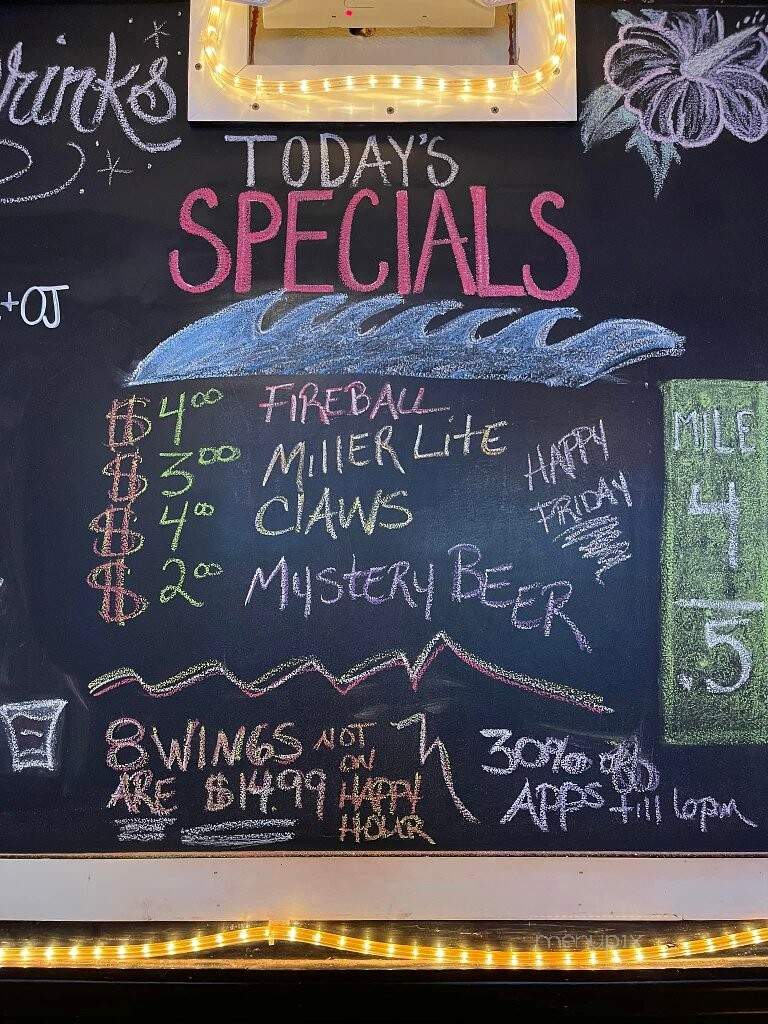 Drinks
TODAY'S
SPECIALS
+OJ
$4.00 FIREBALL
$3.00 MILLER LITE
$4.00 CLAWS
$2.00 MYSTERY BEER
HAPPY
FRIDAY
MILE
4
.5
8 WINGS NOT
ON
ARE $14.99 HAPPY
HOUR
30% off
APPS till 6pm
menupix